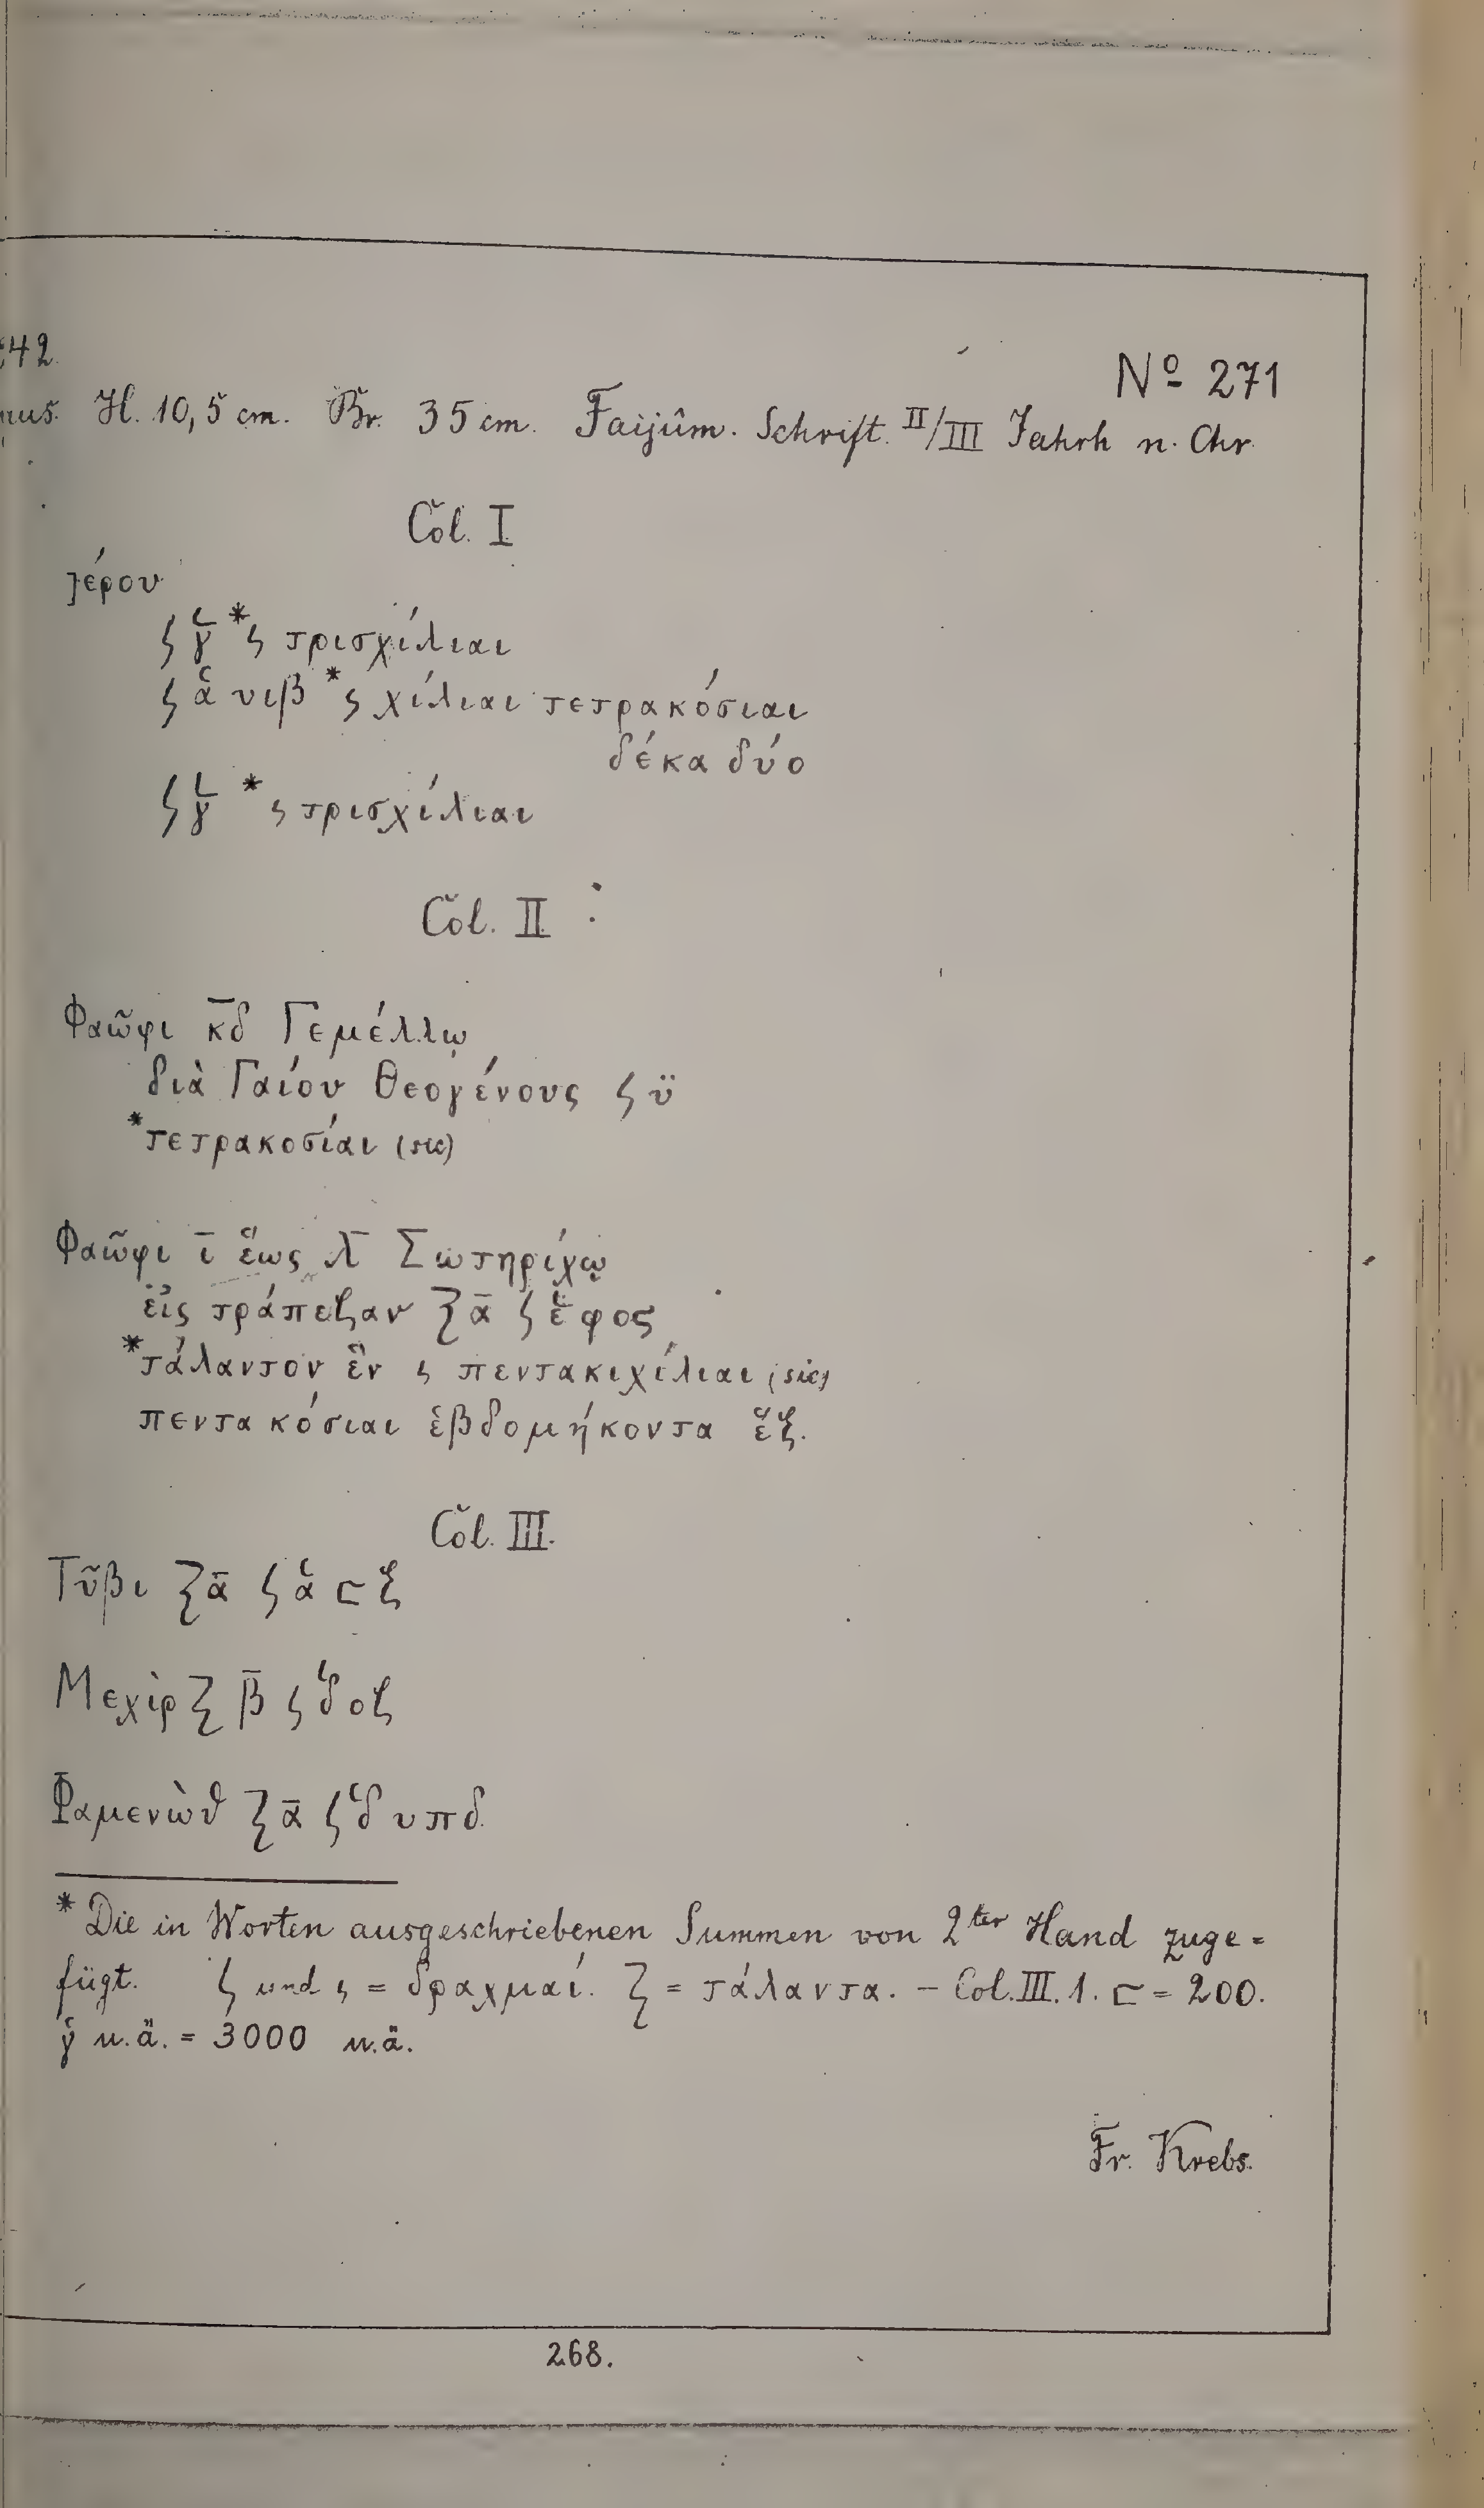 42.
Nº 271
H. 10,5 cm. Br. 35 cm. Faijûm. Schrift. II/III Jahrh n. Chr.
Col. I
]έρου
ϛ ͵γ *ϛ τρισχίλιαι
ϛ ͵α υιβ *ϛ χίλιαι τετρακόσιαι
δέκα δύο
ϛ ͵γ *ϛ τρισχίλιαι
Col. II
Φαῶφι κ̅δ̅ Γεμέλλῳ
διὰ Γαίου Θεογένους ϛ ϋ
*τετρακοσίαι (sic)
Φαῶφι ι̅ ἕως λ̅ Σωτηρίχῳ
εἰς τράπεζαν ξ α̅ ϛ ͵ε φοϛ
*τάλαντον ἓν ϛ πεντακιχίλιαι (sic)
πεντακόσιαι ἑβδομήκοντα ἕξ.
Col. III.
Τῦβι ξ α̅ ϛ ͵α ⊏ ξ
Μεχὶρ ξ β̅ ϛ ͵δ οζ
Φαμενὼθ ξ α̅ ϛ ͵δ υπδ
* Die in Worten ausgeschriebenen Summen von 2ter Hand zuge=
fügt. ϛ und ϛ = δραχμαί. ξ = τάλαντα. – Col. III. 1. ⊏ = 200.
͵γ u.ä. = 3000 u.ä.
Fr. Krebs.
268.